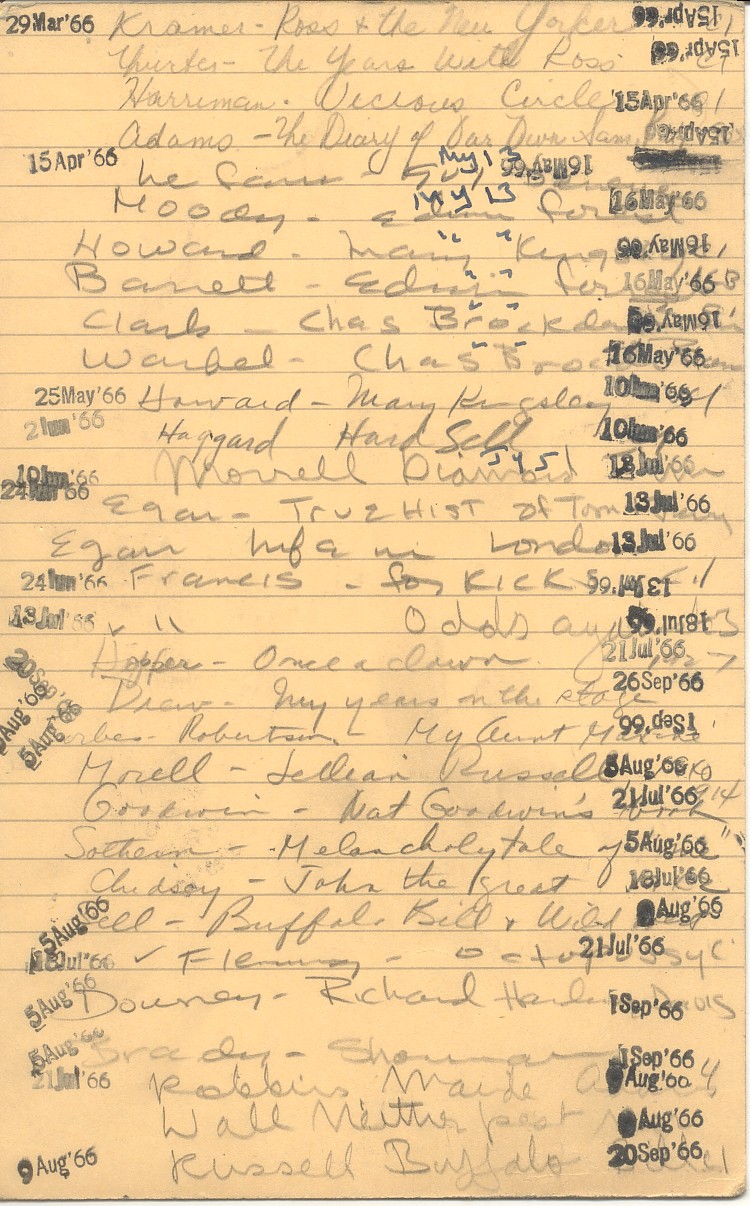 29Mar'66 Kramer - Ross & the New Yorker 15Apr'66
Thurber - The Years With Ross 15Apr'66
Harriman - Vicious Circle 15Apr'66
Adams - The Diary of Our Own Sam 15Apr'66
15Apr'66 My 13 16May'66
Moody - Edwin 16May'66
Howard - Mary Kings 16May'66
Barrett - Edwin For 16May'66
Clark - Chas Brockden 16May'66
Warfel - Chas Brock 16May'66
25May'66 Howard - Mary Kingsley 10Jun'66
2Jun'66 Haggard Hard Sell 10Jun'66
10Jun'66 Morrell Diamond 13Jul'66
24Jun'66 Egan - True Hist of Tom 13Jul'66
Egan Life in London 13Jul'66
24Jun'66 Francis - for Kicks 13Jul'66
13Jul'66 ✓ " Odds 18Jul'66
Hopper - Once a clown 21Jul'66
20Sep'66 Drew - My years on the stage 26Sep'66
5Aug'66 5Aug'66 Robertson - My Aunt 1Sep'66
Morell - Lillian Russell 5Aug'66
Goodwin - Nat Goodwin's 21Jul'66
Sothern - Melancholy tale of "me" 5Aug'66
Chidsey - John the great 18Jul'66
5Aug'66 Buffalo Bill & Wild 9Aug'66
18Jul'66 ✓ Fleming - Octopussy 21Jul'66
5Aug'66 Downey - Richard Harding Davis 1Sep'66
5Aug'66 Brady - Showman 1Sep'66
21Jul'66 Robbins Maude 9Aug'66
Wall Neither pest 9Aug'66
9Aug'66 Russell Buffalo 20Sep'66